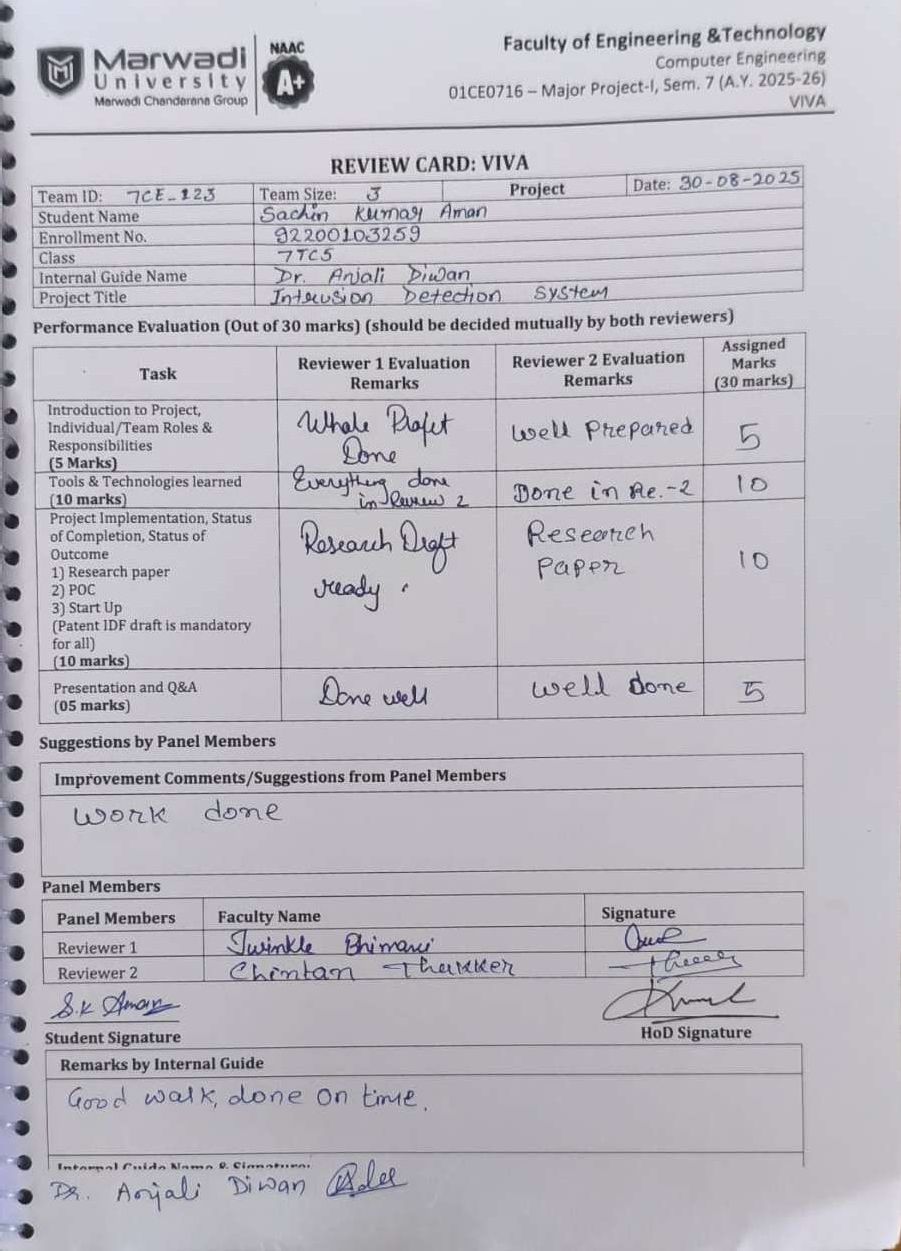 Marwadi
University
Marwadi Chandarana Group
NAAC
A+
Faculty of Engineering &Technology
Computer Engineering
01CE0716 – Major Project-I, Sem. 7 (A.Y. 2025-26)
VIVA
REVIEW CARD: VIVA
Team ID: 7CE-123 Team Size: 3 Project Date: 30-08-2025
Student Name Sachin Kumar Aman
Enrollment No. 92200103259
Class 7TC5
Internal Guide Name Dr. Anjali Diwan
Project Title Intrusion Detection System
Performance Evaluation (Out of 30 marks) (should be decided mutually by both reviewers)
Task
Reviewer 1 Evaluation
Remarks
Reviewer 2 Evaluation
Remarks
Assigned
Marks
(30 marks)
Introduction to Project,
Individual/Team Roles &
Responsibilities
(5 Marks)
Whole
Done
Well Prepared
5
Tools & Technologies learned
(10 marks)
Everything done
in Review 2
Done in Re.-2
10
Project Implementation, Status
of Completion, Status of
Outcome
1) Research paper
2) POC
3) Start Up
(Patent IDF draft is mandatory
for all)
(10 marks)
Research Draft
ready.
Research
Paper
10
Presentation and Q&A
(05 marks)
Done well
Well done
5
Suggestions by Panel Members
Improvement Comments/Suggestions from Panel Members
Work done
Panel Members
Panel Members Faculty Name Signature
Reviewer 1 Twinkle Bhimani
Reviewer 2 Chintan Thakker
S.K Aman
Student Signature
HoD Signature
Remarks by Internal Guide
Good work, done on time.
Internal Guide Name & Signature:
Dr. Anjali Diwan